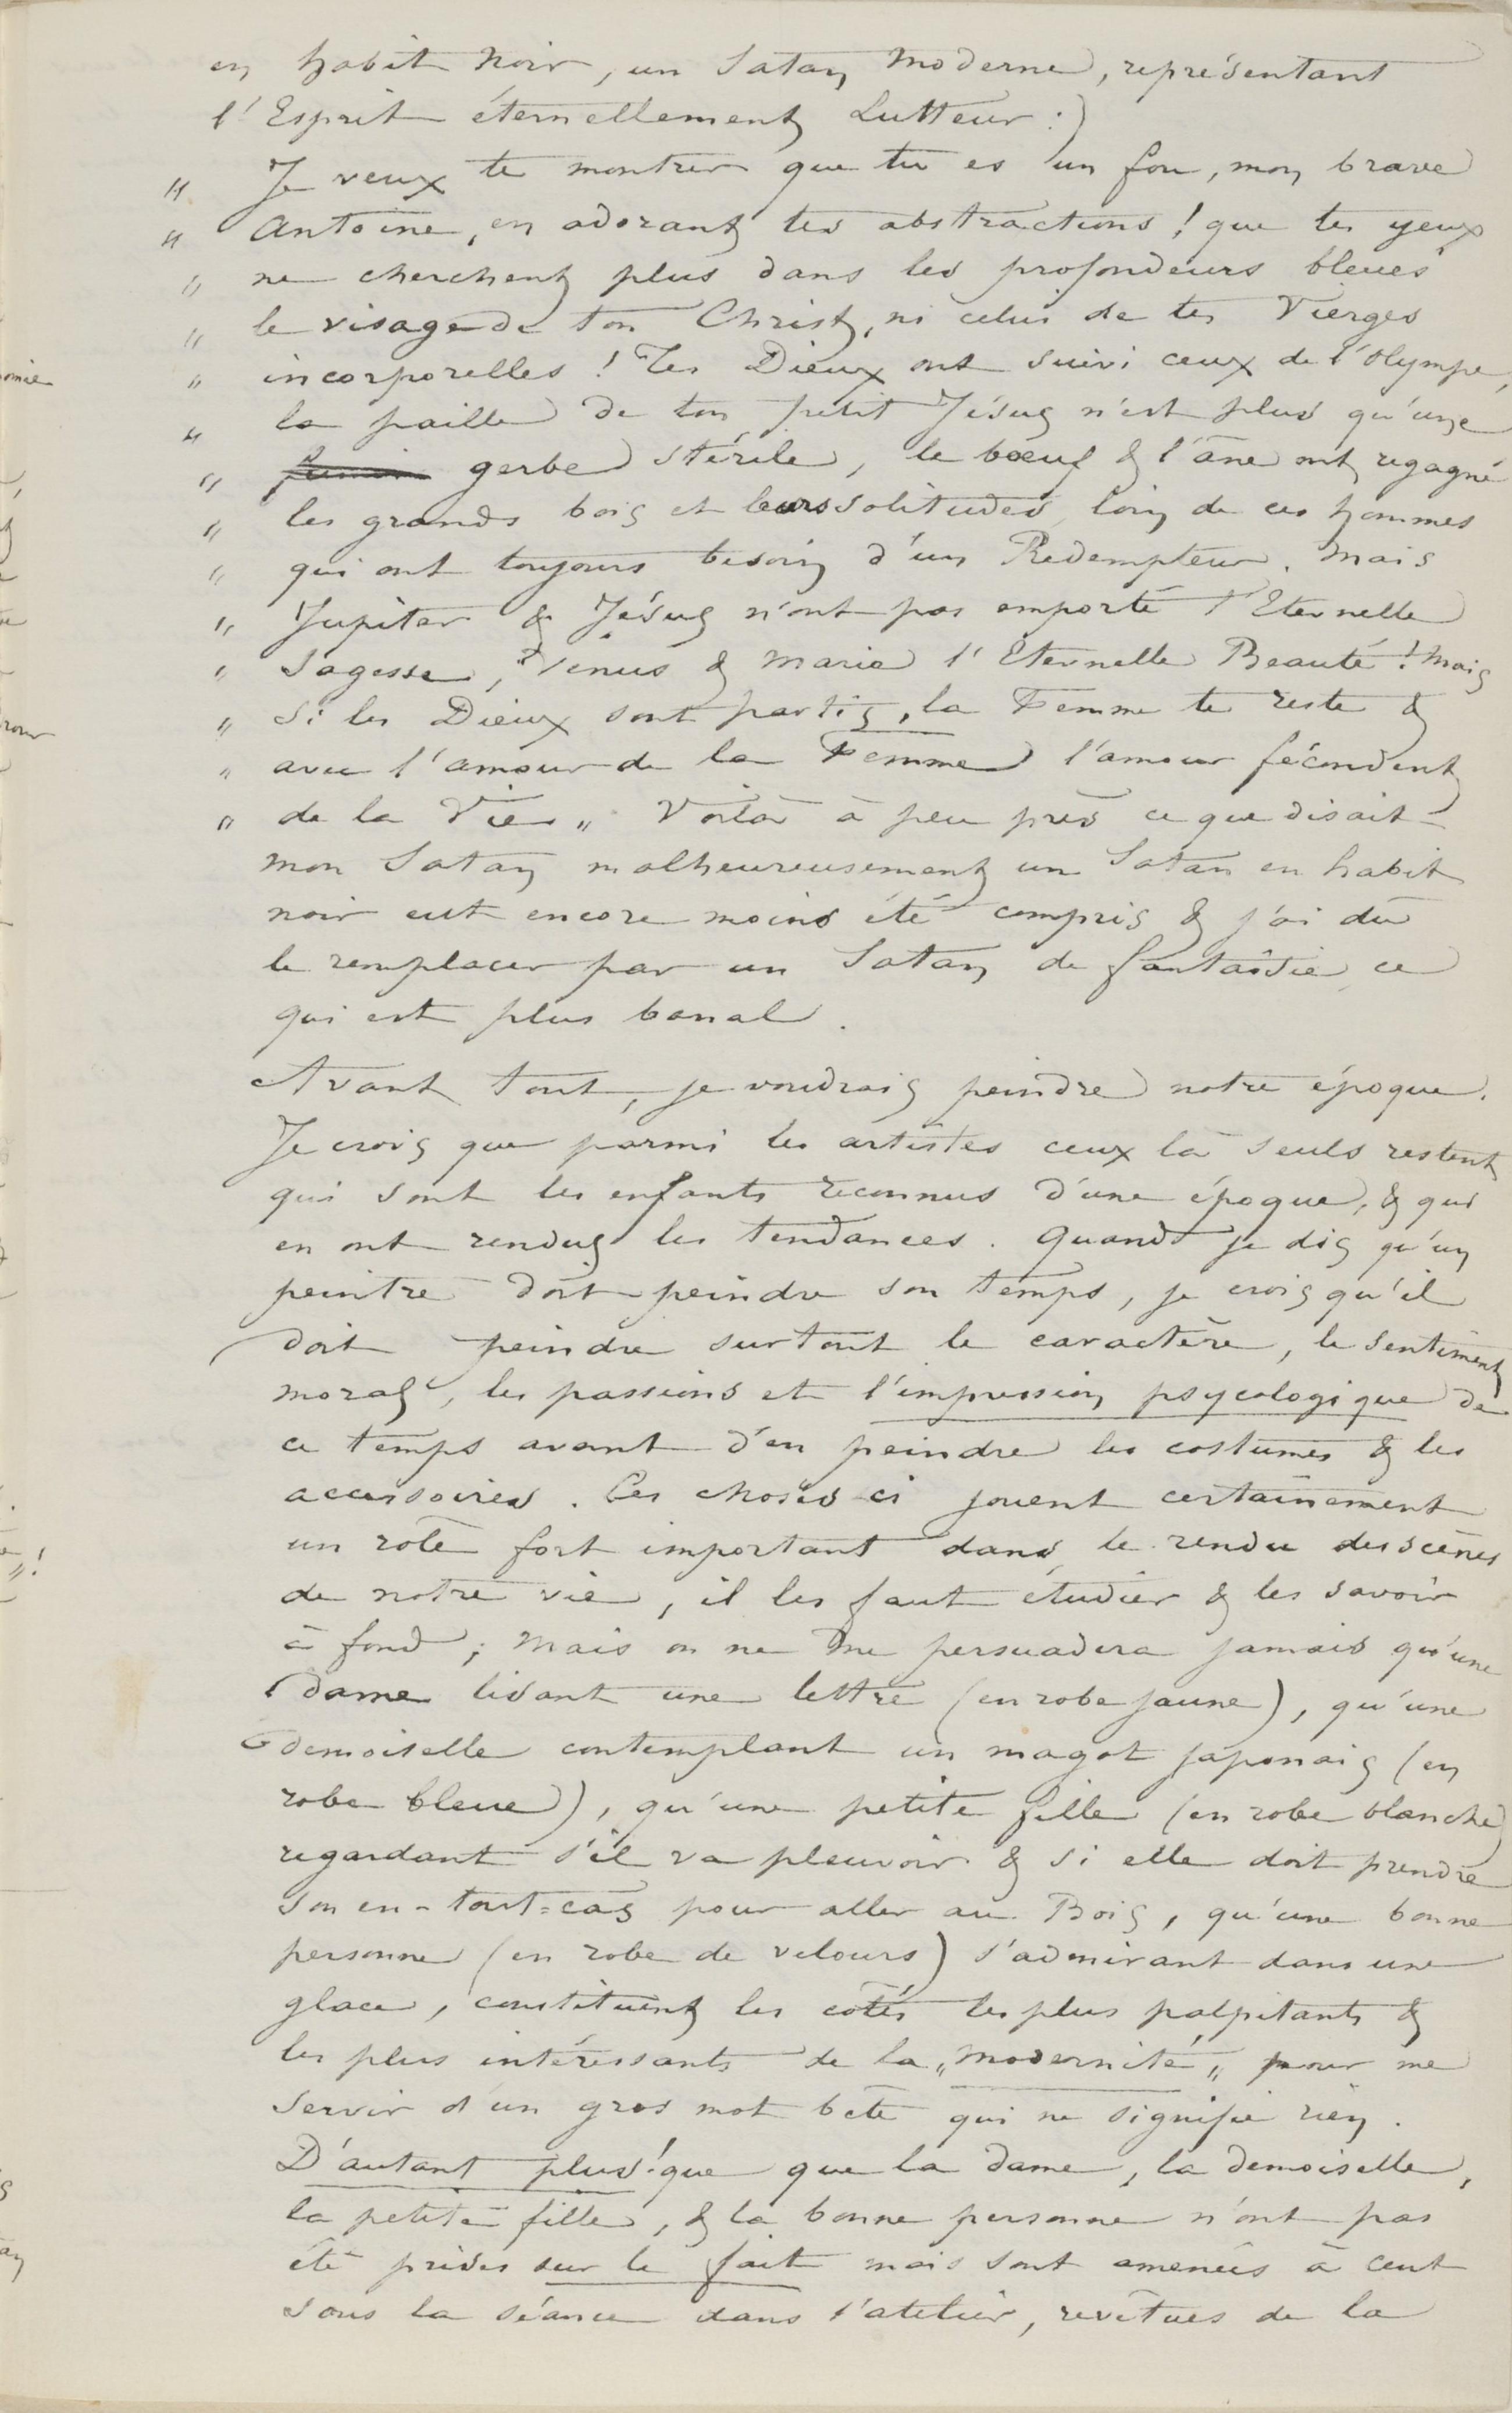 en habit noir, un Satan moderne, représentant
l'Esprit éternellement Lutteur :)
" Je veux te montrer que tu es un fou, mon brave
" Antoine, en adorant tes abstractions ! que tes yeux
" ne cherchent plus dans les profondeurs bleues
" le visage de ton Christ, ni celui de tes Vierges
" incorporelles ! Tes Dieux ont suivi ceux de l'Olympe,
" la paille de ton petit Jésus n'est plus qu'une
" gerbe stérile, le boeuf & l'âne ont regagné
" les grands bois et leurs solitudes loin de ces hommes
" qui ont toujours besoin d'un Redempteur. Mais
" Jupiter & Jésus n'ont pas emporté l'Eternelle
" Sagesse, Vénus & Marie l'Eternelle Beauté ! Mais
" Si les Dieux sont partis, la Femme te reste &
" avec l'amour de la Femme l'amour fécondant
" de la Vie " Voilà à peu près ce que disait
mon Satan malheureusement un Satan en habit
noir eut encore moins été compris & j'ai dû
le remplacer par un Satan de fantaisie ce
qui est plus banal.
Avant tout, je voudrais peindre notre époque.
Je crois que parmi les artistes ceux là seuls restent
qui sont les enfants reconnus d'une époque, & qui
en ont rendus les tendances. Quand je dis qu'un
peintre doit peindre son temps, je crois qu'il
doit peindre surtout le caractère, le sentiment
moral, les passions et l'impression psycologique de
ce temps avant d'en peindre les costumes & les
accessoires. Ces choses-ci jouent certainement
un rôle fort important dans le rendu des scènes
de notre vie, il les faut étudier & les savoir
à fond ; Mais on ne me persuadera jamais qu'une
dame lisant une lettre (en robe jaune), qu'une
demoiselle contemplant un magot japonais (en
robe bleue), qu'une petite fille (en robe blanche)
regardant s'il va pleuvoir & si elle doit prendre
son en-tout-cas pour aller au Bois, qu'une bonne
personne (en robe de velours) s'admirant dans une
glace, constituent les côtés les plus palpitants &
les plus intéressants de la "modernité" pour me
servir d'un gros mot bête qui ne signifie rien.
D'autant plus ! que que la dame, la demoiselle,
la petite fille, & la bonne personne n'ont pas
été prises sur le fait mais sont amenées à cent
sous la séance dans l'atelier, revêtues de la